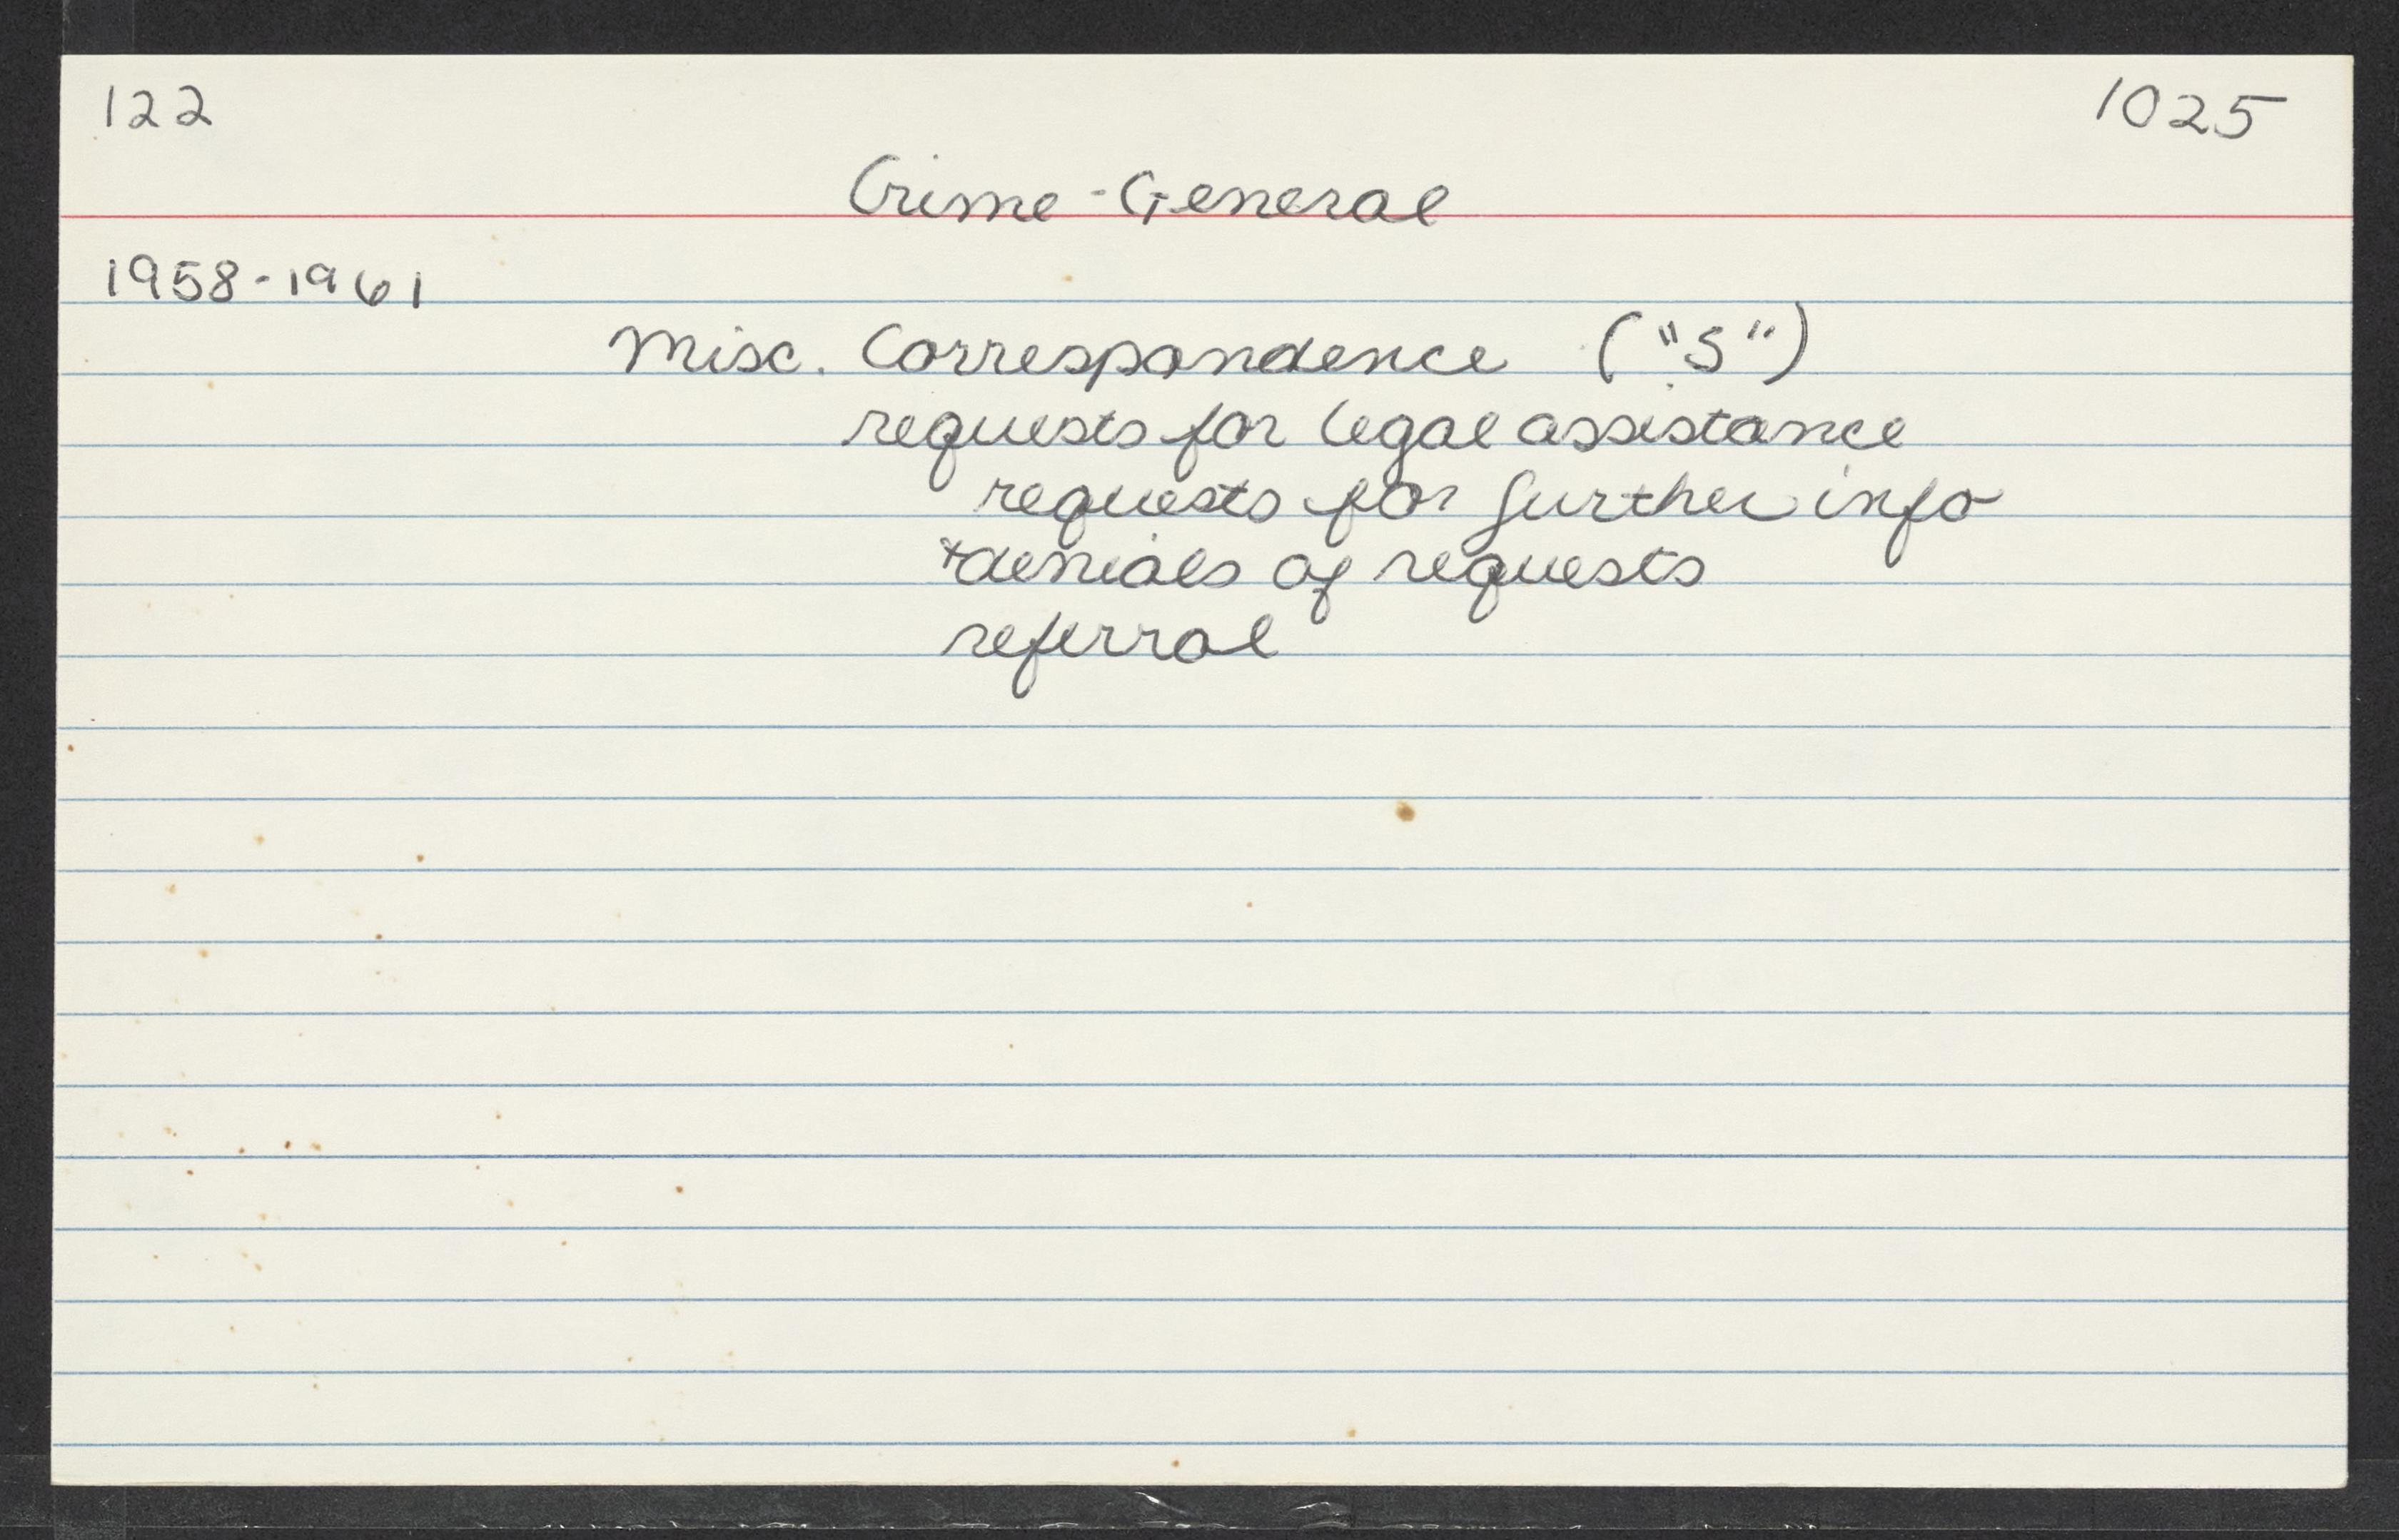 122 1025
Crime - General
1958-1961
Misc. Correspondence ("S")
requests for legal assistance
requests for further info
+denials of requests
referral